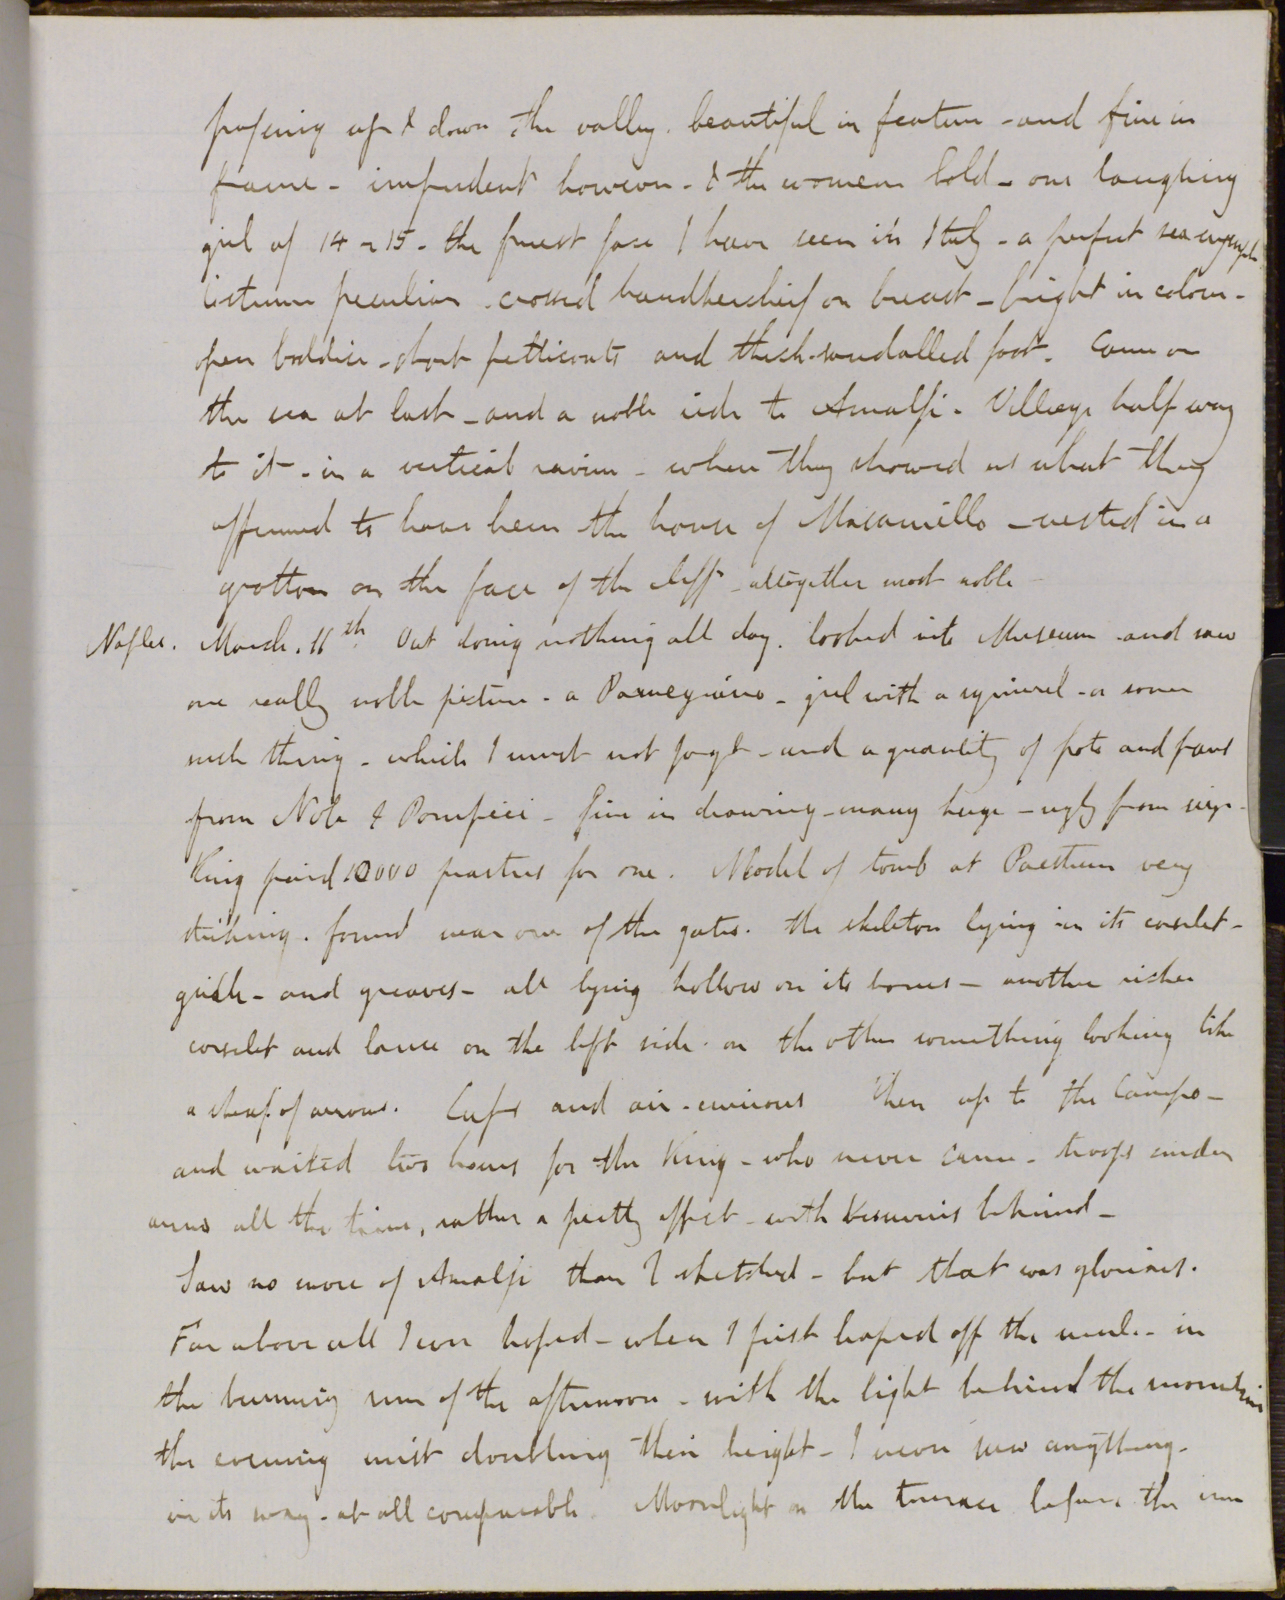 passing up & down the valley. beautiful in feature - and fine in
frame - impudent however - & the women bold - one laughing
girl of 14 or 15 - the finest face I have seen in Italy - a perfect sea nymph
Costume peculiar. crossed handkerchief on breast - bright in colour -
open boddice - short petticoats and thick-sandalled foot. Came on
the sea at last - and a noble ride to Amalfi - Village half way
to it - in a vertical ravine - where they showed us what they
affirmed to have been the house of Masaniello - nested in a
grotto on the face of the cliff - altogether most noble -
Naples. March. 11th Out doing nothing all day. looked into Museum and saw
one really noble picture - a Parmegiano - girl with a squirrel - or some
such thing - which I must not forget - and a quantity of pots and pans
from Nola & Pompeii - fine in drawing - many huge - ugly from size -
King paid 10000 piastres for one. Model of tomb at Paestum very
striking. found near one of the gates. the skeleton lying in its corslet -
girdle - and greaves - all lying hollow on its bones - another richer
corselet and lance on the left side. on the other something looking like
a sheaf of arrows. Cups and air - curious Then up to the Campo -
and waited two hours for the King - who never came - troops under
arms all the time, rather a pretty effect - with Vesuvius behind -
Saw no more of Amalfi than I sketched - but that was glorious.
Far above all I ever hoped - when I first leaped off the mule - in
the burning sun of the afternoon - with the light behind the mountains
the evening mist doubling their height - I never saw anything -
in its way - at all comparable. Moonlight on the terrace before the inn